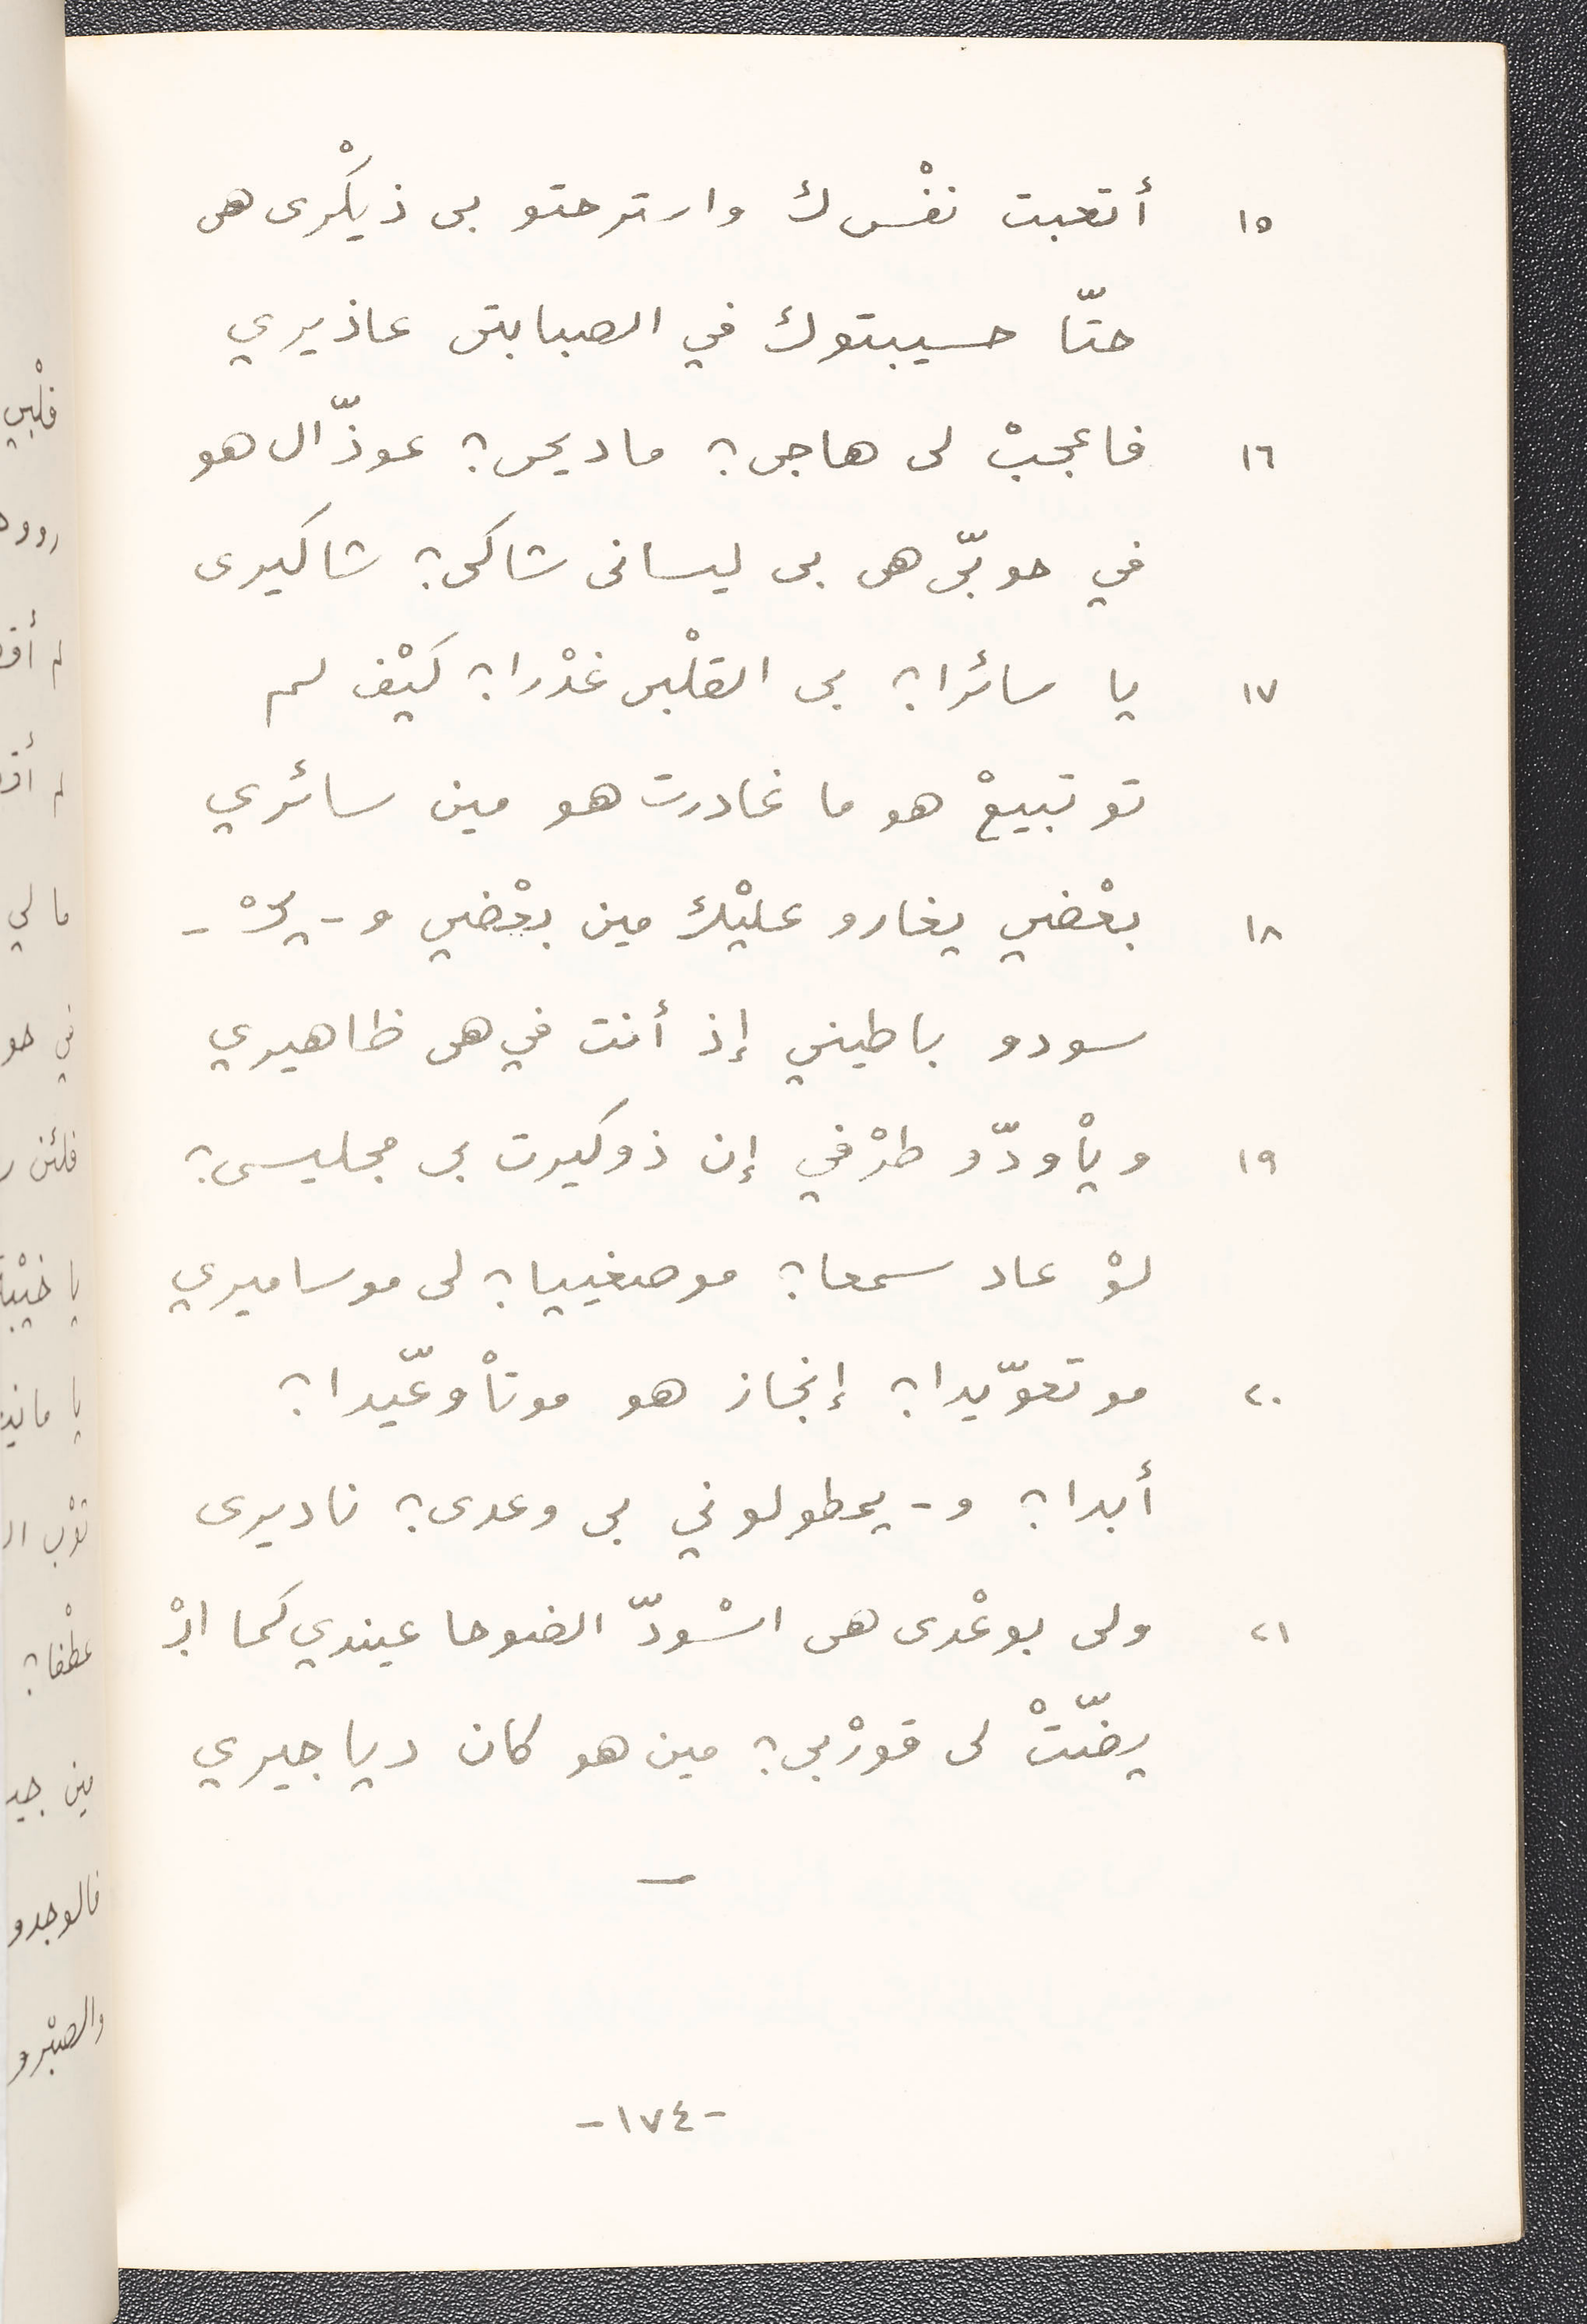 ١٥ أتعبت نفْس ك وارترحتو بى ذيكْرى هى
حتّا حسيبتوك في الصبابتى عاذيري
١٦ فاعجبْ لى هاجى؟ ماديحى؟ عوذّال هو
في حوبّى هى بى ليسانى شاكى؟ شاكيرى
١٧ يا سائرا؟ بى القلْبى غدْرا؟ كيْف لم
توتبيعْ هو ما غادرت هو مين سائري
١٨ بعْضي يغارو عليْك مين بعْضي و-يحْ-
سودو باطيني إذ أنت في هى ظاهيري
١٩ ويأْودّو طرْفي إن ذوكيرت بى مجليسى؟
لوْ عاد سمعا؟ موصغييا؟ لى موساميري
٢٠ موتعوّيدا؟ إنجاز هو موتأْوعّيدا؟
أبدا؟ و-يمطولوني بى وعدى؟ ناديرى
٢١ ولى بوعْدى هى اسْودّ الضوحا عيندي كما ابْ
يضّتْ لى قورْبى؟ مين هو كان دياجيري
-١٧٤-